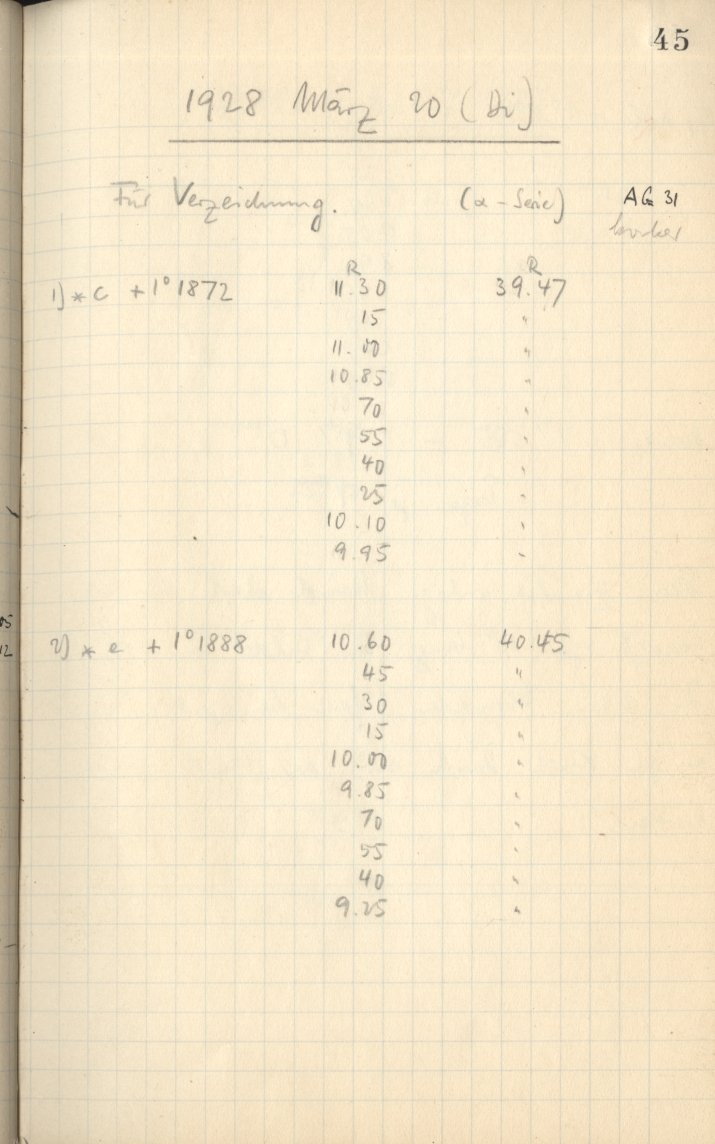 45
1928 März 20 (Di)
Für Verzeichnung. (α-Serie) AG 31
R R
1) * c +1° 1872 11.30 39.47
15 "
11.00 "
10.85 "
70 "
55 "
40 "
25 "
10.10 "
9.95 "
05
12
2) * e +1° 1888 10.60 40.45
45 "
30 "
15 "
10.00 "
9.85 "
70 "
55 "
40 "
9.25 "